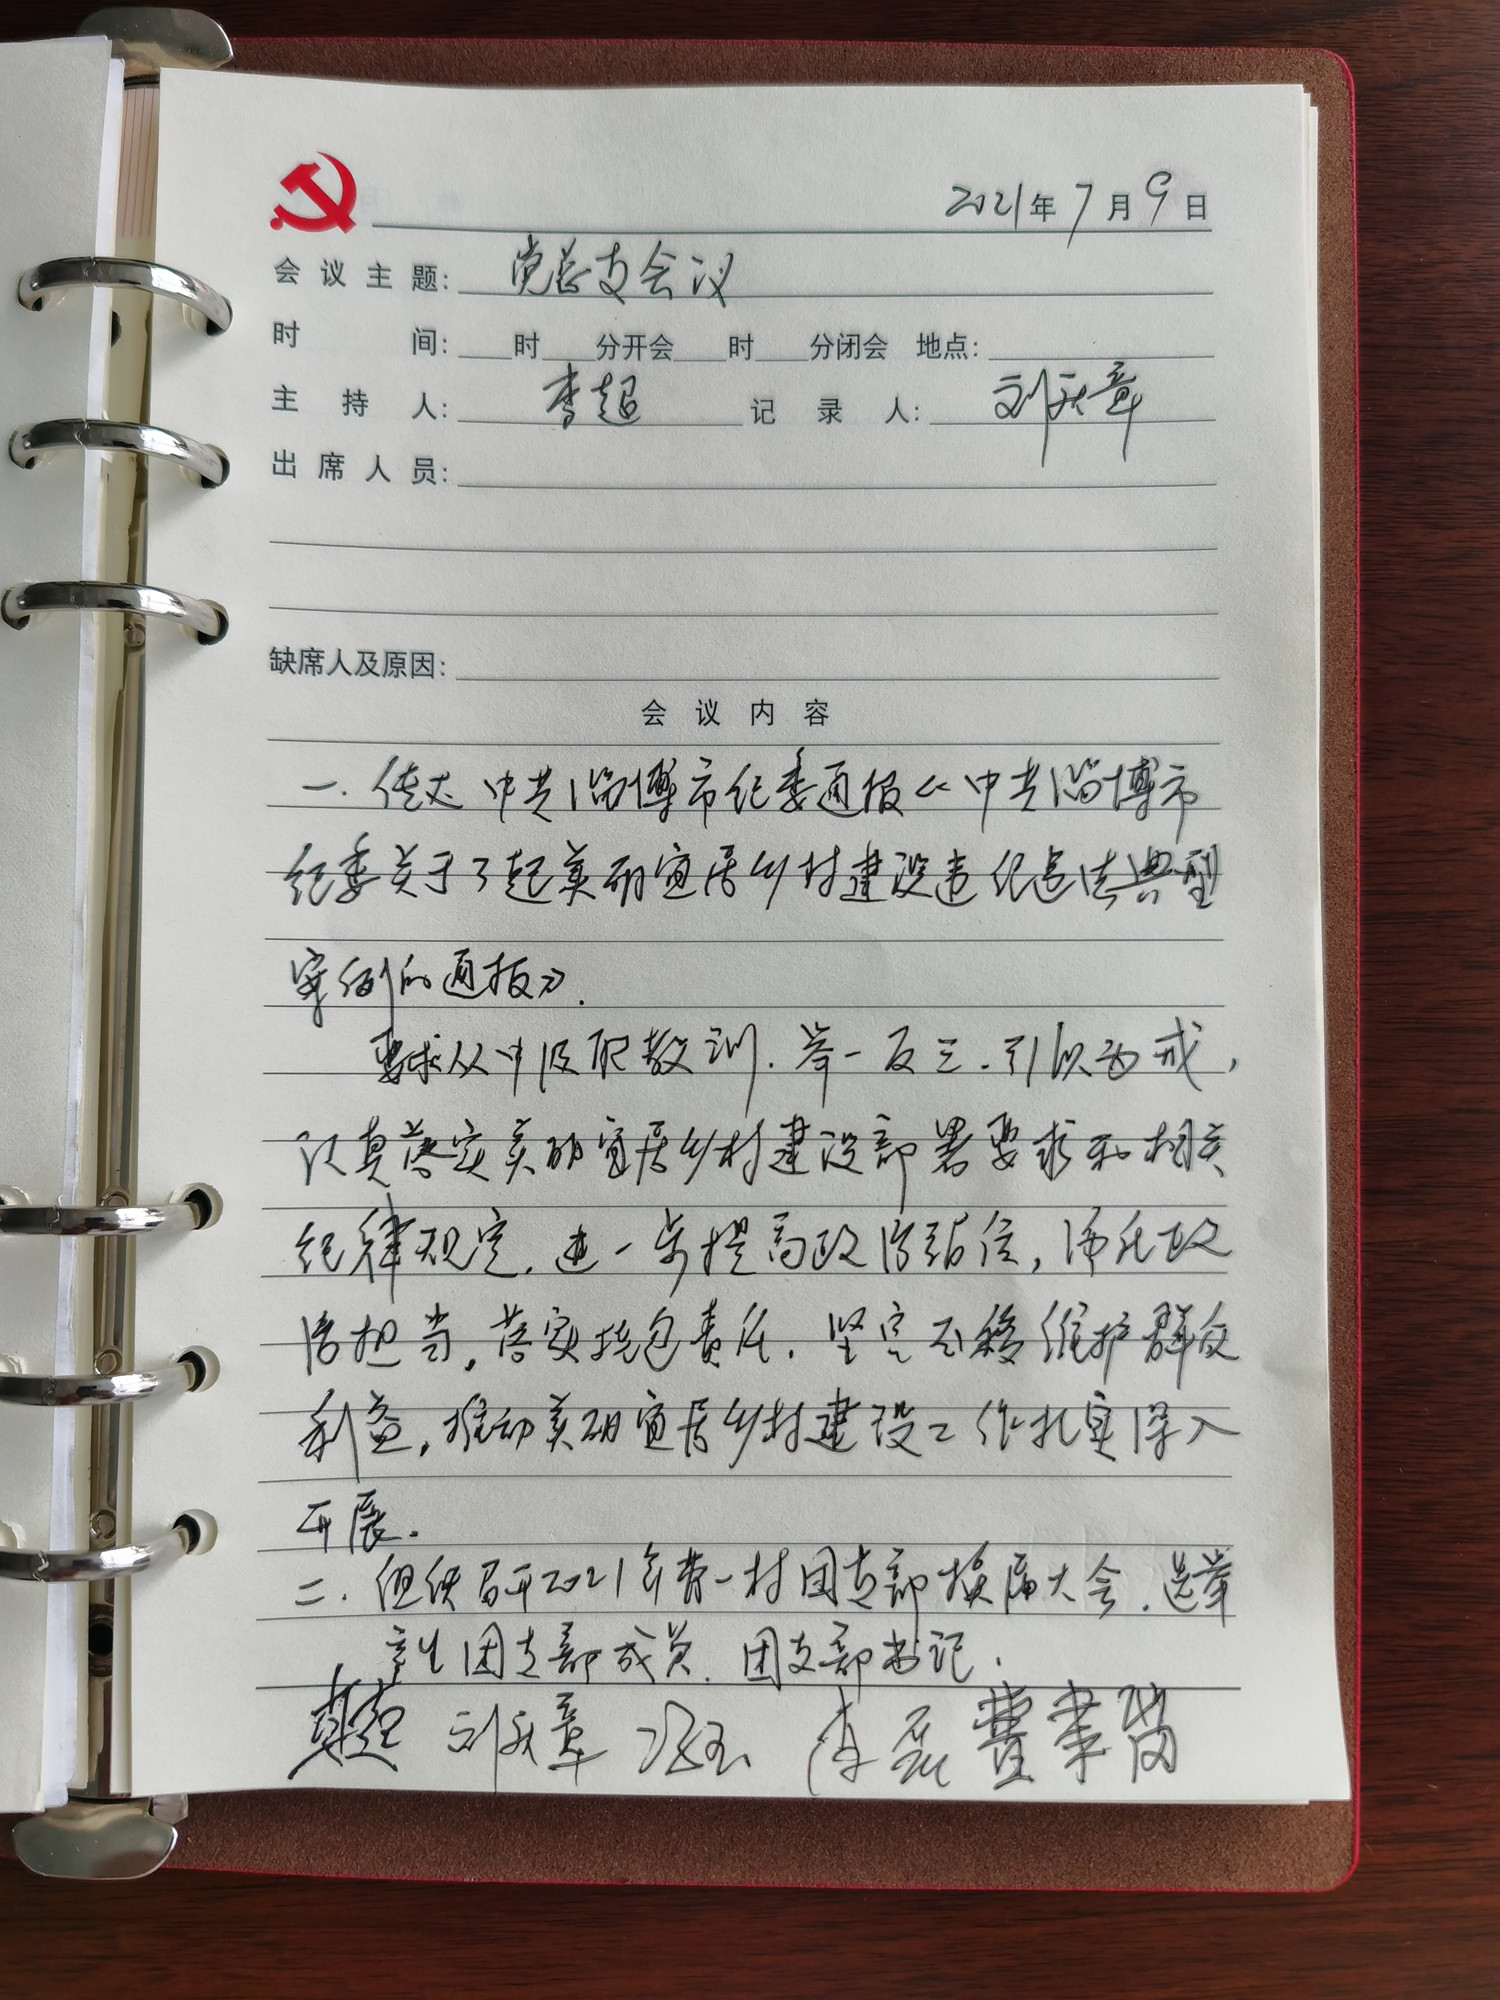 2021年7月9日
会议主题：党总支会议
时间：　时　分开会　时　分闭会　地点：
主持人：李超　记录人：刘庆章
出席人员：
缺席人及原因：
会议内容
一.传达中共淄博市纪委通报《中共淄博市
纪委关于3起美丽宜居乡村建设违纪违法典型
案例的通报》.
要求从中汲取教训.举一反三.引以为戒,
认真落实美丽宜居乡村建设部署要求和相关
纪律规定.进一步提高政治站位,强化政
治担当,落实扛包责任.坚定不移维护群众
利益,推动美丽宜居乡村建设工作扎实深入
开展.
二.组织召开2021年黄一村团支部换届大会.选举
产生团支部成员.团支部书记.
李超 刘庆章 李磊